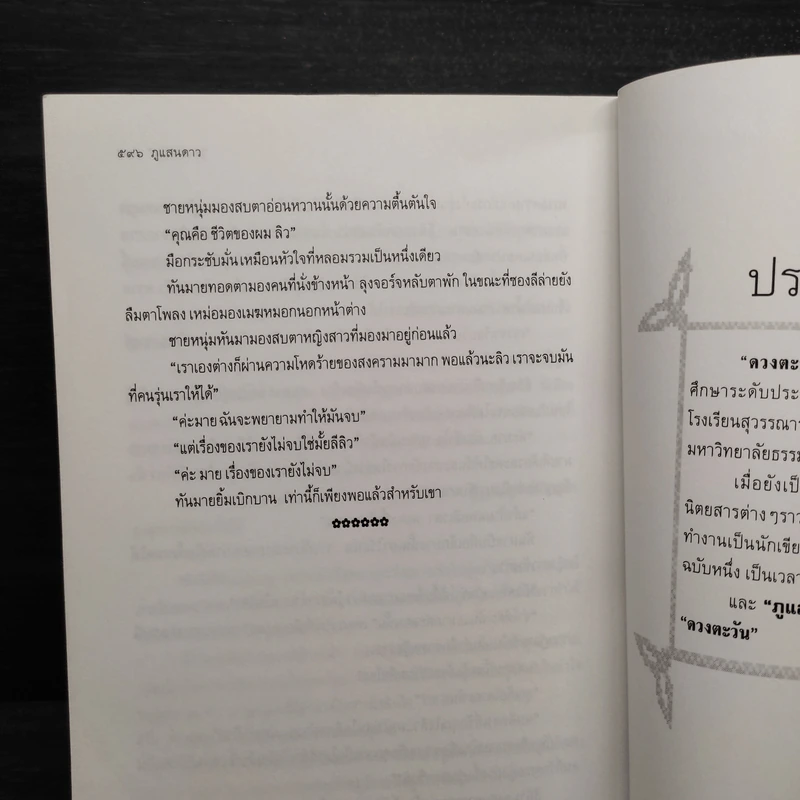 ๕๙๖ ภูแสนดาว
ชายหนุ่มมองสบตาอ่อนหวานนั้นด้วยความตื้นตันใจ
“คุณคือ ชีวิตของผม ลิว”
มือกระชับมั่น เหมือนหัวใจที่หลอมรวมเป็นหนึ่งเดียว
ทันมายทอดตามองคนที่นั่งข้างหน้า ลุงจอร์จหลับตาพัก ในขณะที่ซองลีล่ายัง
ลืมตาโพลง เหม่อมองเมฆหมอกนอกหน้าต่าง
ชายหนุ่มหันมามองสบตาหญิงสาวที่มองมาอยู่ก่อนแล้ว
“เราเองต่างก็ผ่านความโหดร้ายของสงครามมามาก พอแล้วนะลิว เราจะจบมัน
ที่คนรุ่นเราให้ได้”
“ค่ะมาย ฉันจะพยายามทำให้มันจบ”
“แต่เรื่องของเรายังไม่จบใช่มั้ยลีลิว”
“ค่ะ มาย เรื่องของเรายังไม่จบ”
ทันมายยิ้มเบิกบาน เท่านี้ก็เพียงพอแล้วสำหรับเขา
ปร
“ดวงตะ
ศึกษาระดับประ
โรงเรียนสุวรรณา
มหาวิทยาลัยธรรม
เมื่อยังเป็
นิตยสารต่าง ๆ ราว
ทำงานเป็นนักเขีย
ฉบับหนึ่ง เป็นเวลา
และ “ภูแส
“ดวงตะวัน”